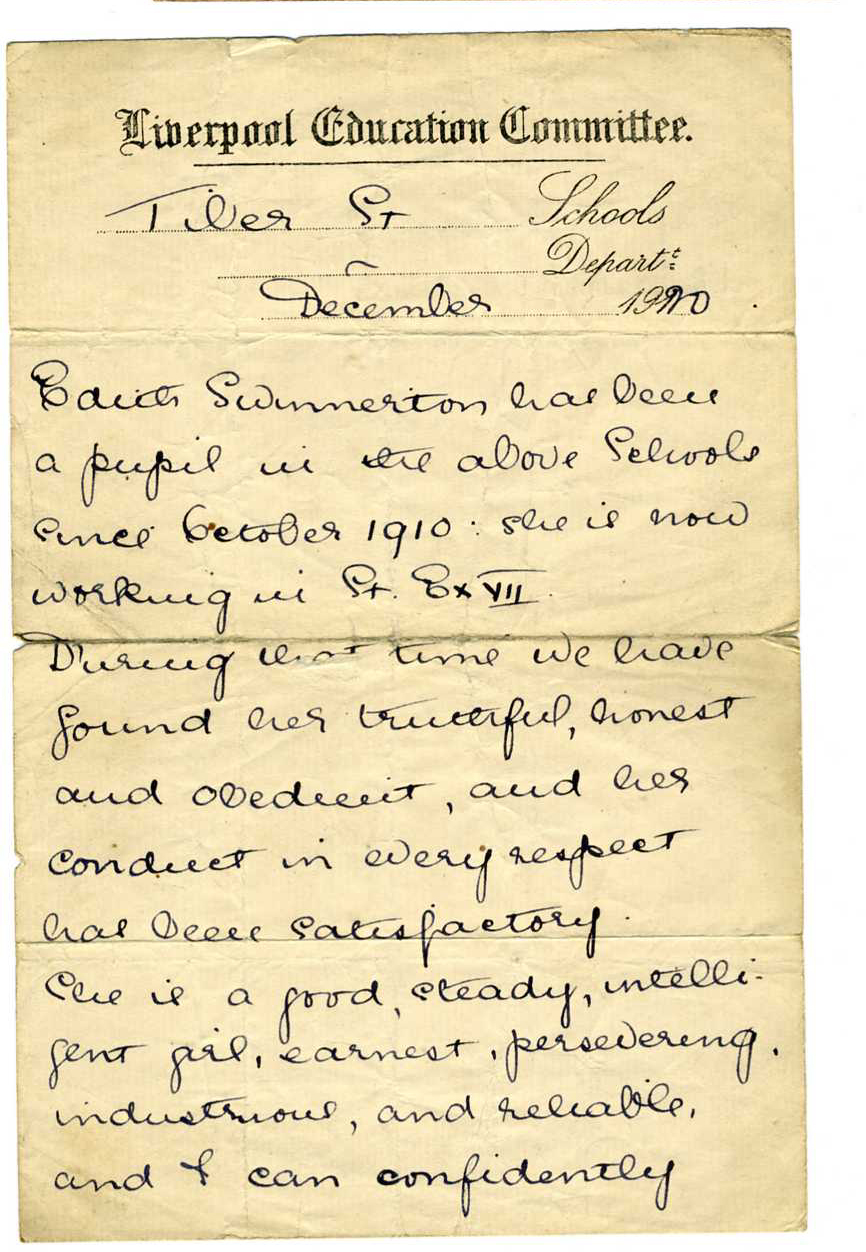 Liverpool Education Committee.
Tiber St Schools
Depart:t
December 1920
Edith Swinnerton has been
a pupil in the above Schools
since October 1910 : she is now
working in St. Ex VII.
During that time we have
found her truthful, honest
and obedient, and her
conduct in every respect
has been satisfactory.
She is a good, steady, intelli-
gent girl, earnest, persevering,
industrious, and reliable,
and I can confidently